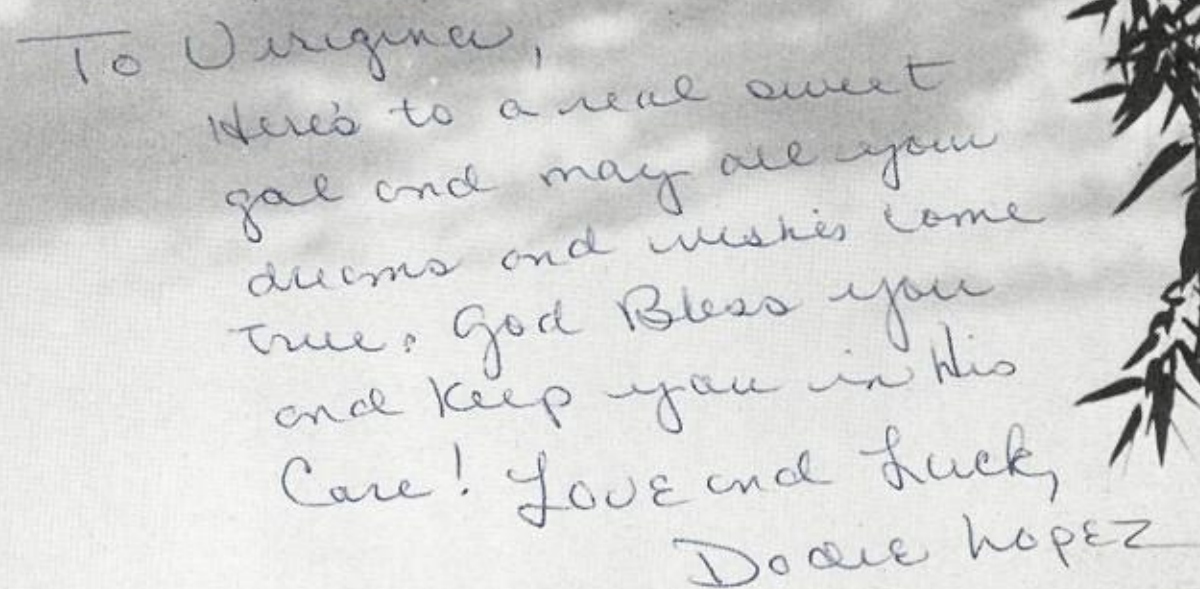 To Virginia,
Here's to a real sweet
gal and may all your
dreams and wishes come
true. God Bless you
and keep you in His
Care! Love and Luck,
Dodie Lopez